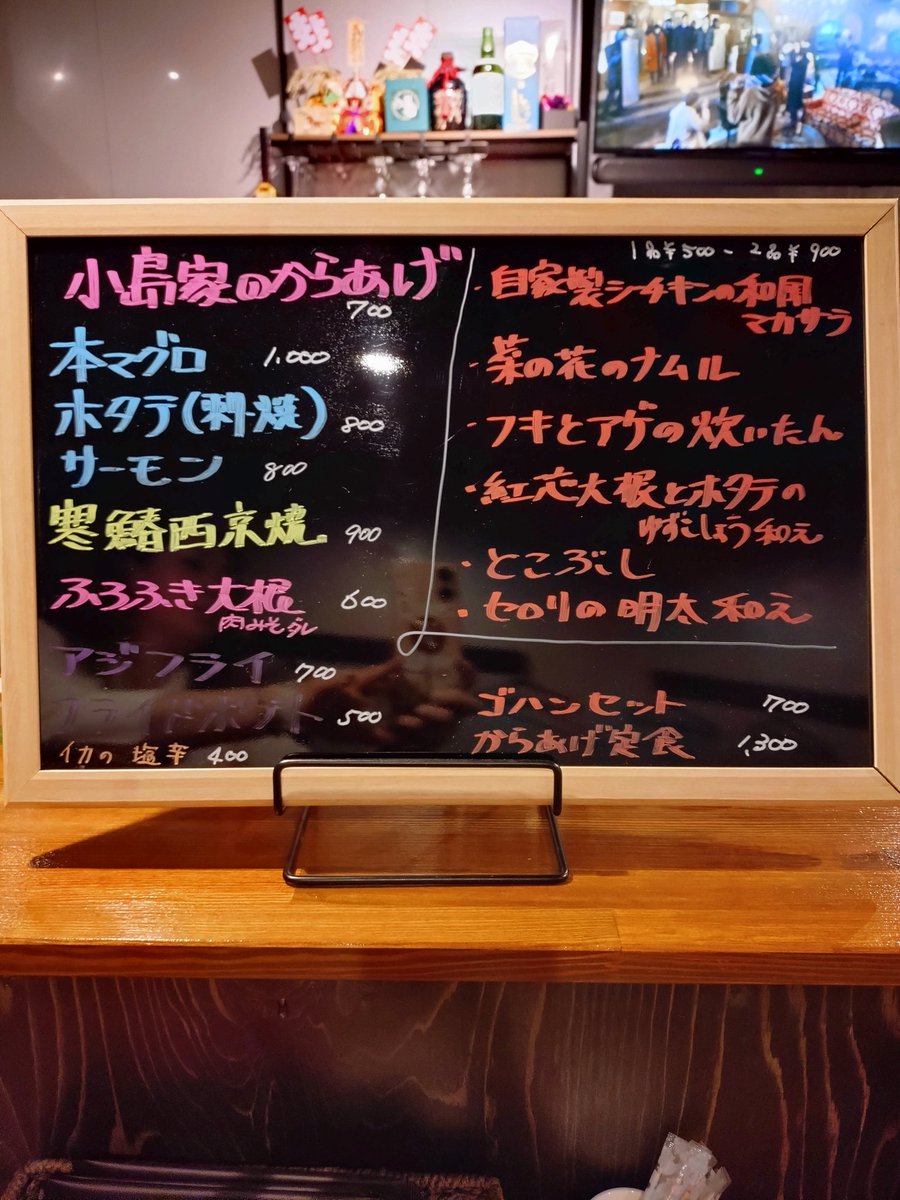 小島家のからあげ
700
本マグロ 1.000
ホタテ(刺・焼) 800
サーモン 800
寒鰆西京焼 900
ふろふき大根 600
肉みそダレ
アジフライ 700
フライドポテト 500
イカの塩辛 400
1品¥500- 2品¥900
・自家製シーチキンの和風
マカサラ
・菜の花のナムル
・フキとアゲの炊いたん
・紅芯大根とホタテの
ゆずこしょう和え
・とこぶし
・セロリの明太和え
ゴハンセット 700
からあげ定食 1,300